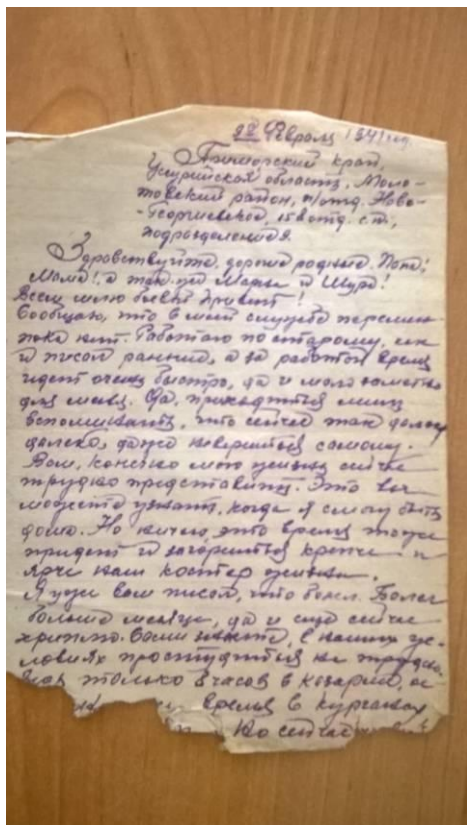 9 Февраля 1941 год.
Приморский край,
Уссурийская область, Моло-
товский район, п/отд. Ново-
-Георгиевское, 158 отд. с.т.,
подразделение 9.
Здравствуйте, дорогие родные. Папа!
Мама!, а так же Маруся и Шура!
Всем шлю боевой привет!
Сообщаю, что в моей службе перемен
пока нет. Работаю по старому, как
и писал раньше, а за работой время
идет очень быстро, да и мало заметно
для меня. Да, приходится лишь
вспоминать, что сейчас так далеко
далеко, даже не верится самому.
Вам, конечно мою жизнь сейчас
трудно представить. Это вы
можете узнать, когда я смогу быть
дома. Но ничего, это время тоже
придет и загорится крепче и
ярче наш костер жизни.
Я уже вам писал, что болел. Болел
больше месяца, да и еще сейчас
хриплю. Сами знаете, в наших ус-
ловиях простудиться не трудно
только 8 часов в казарме, ос-
время в
Но сейчас